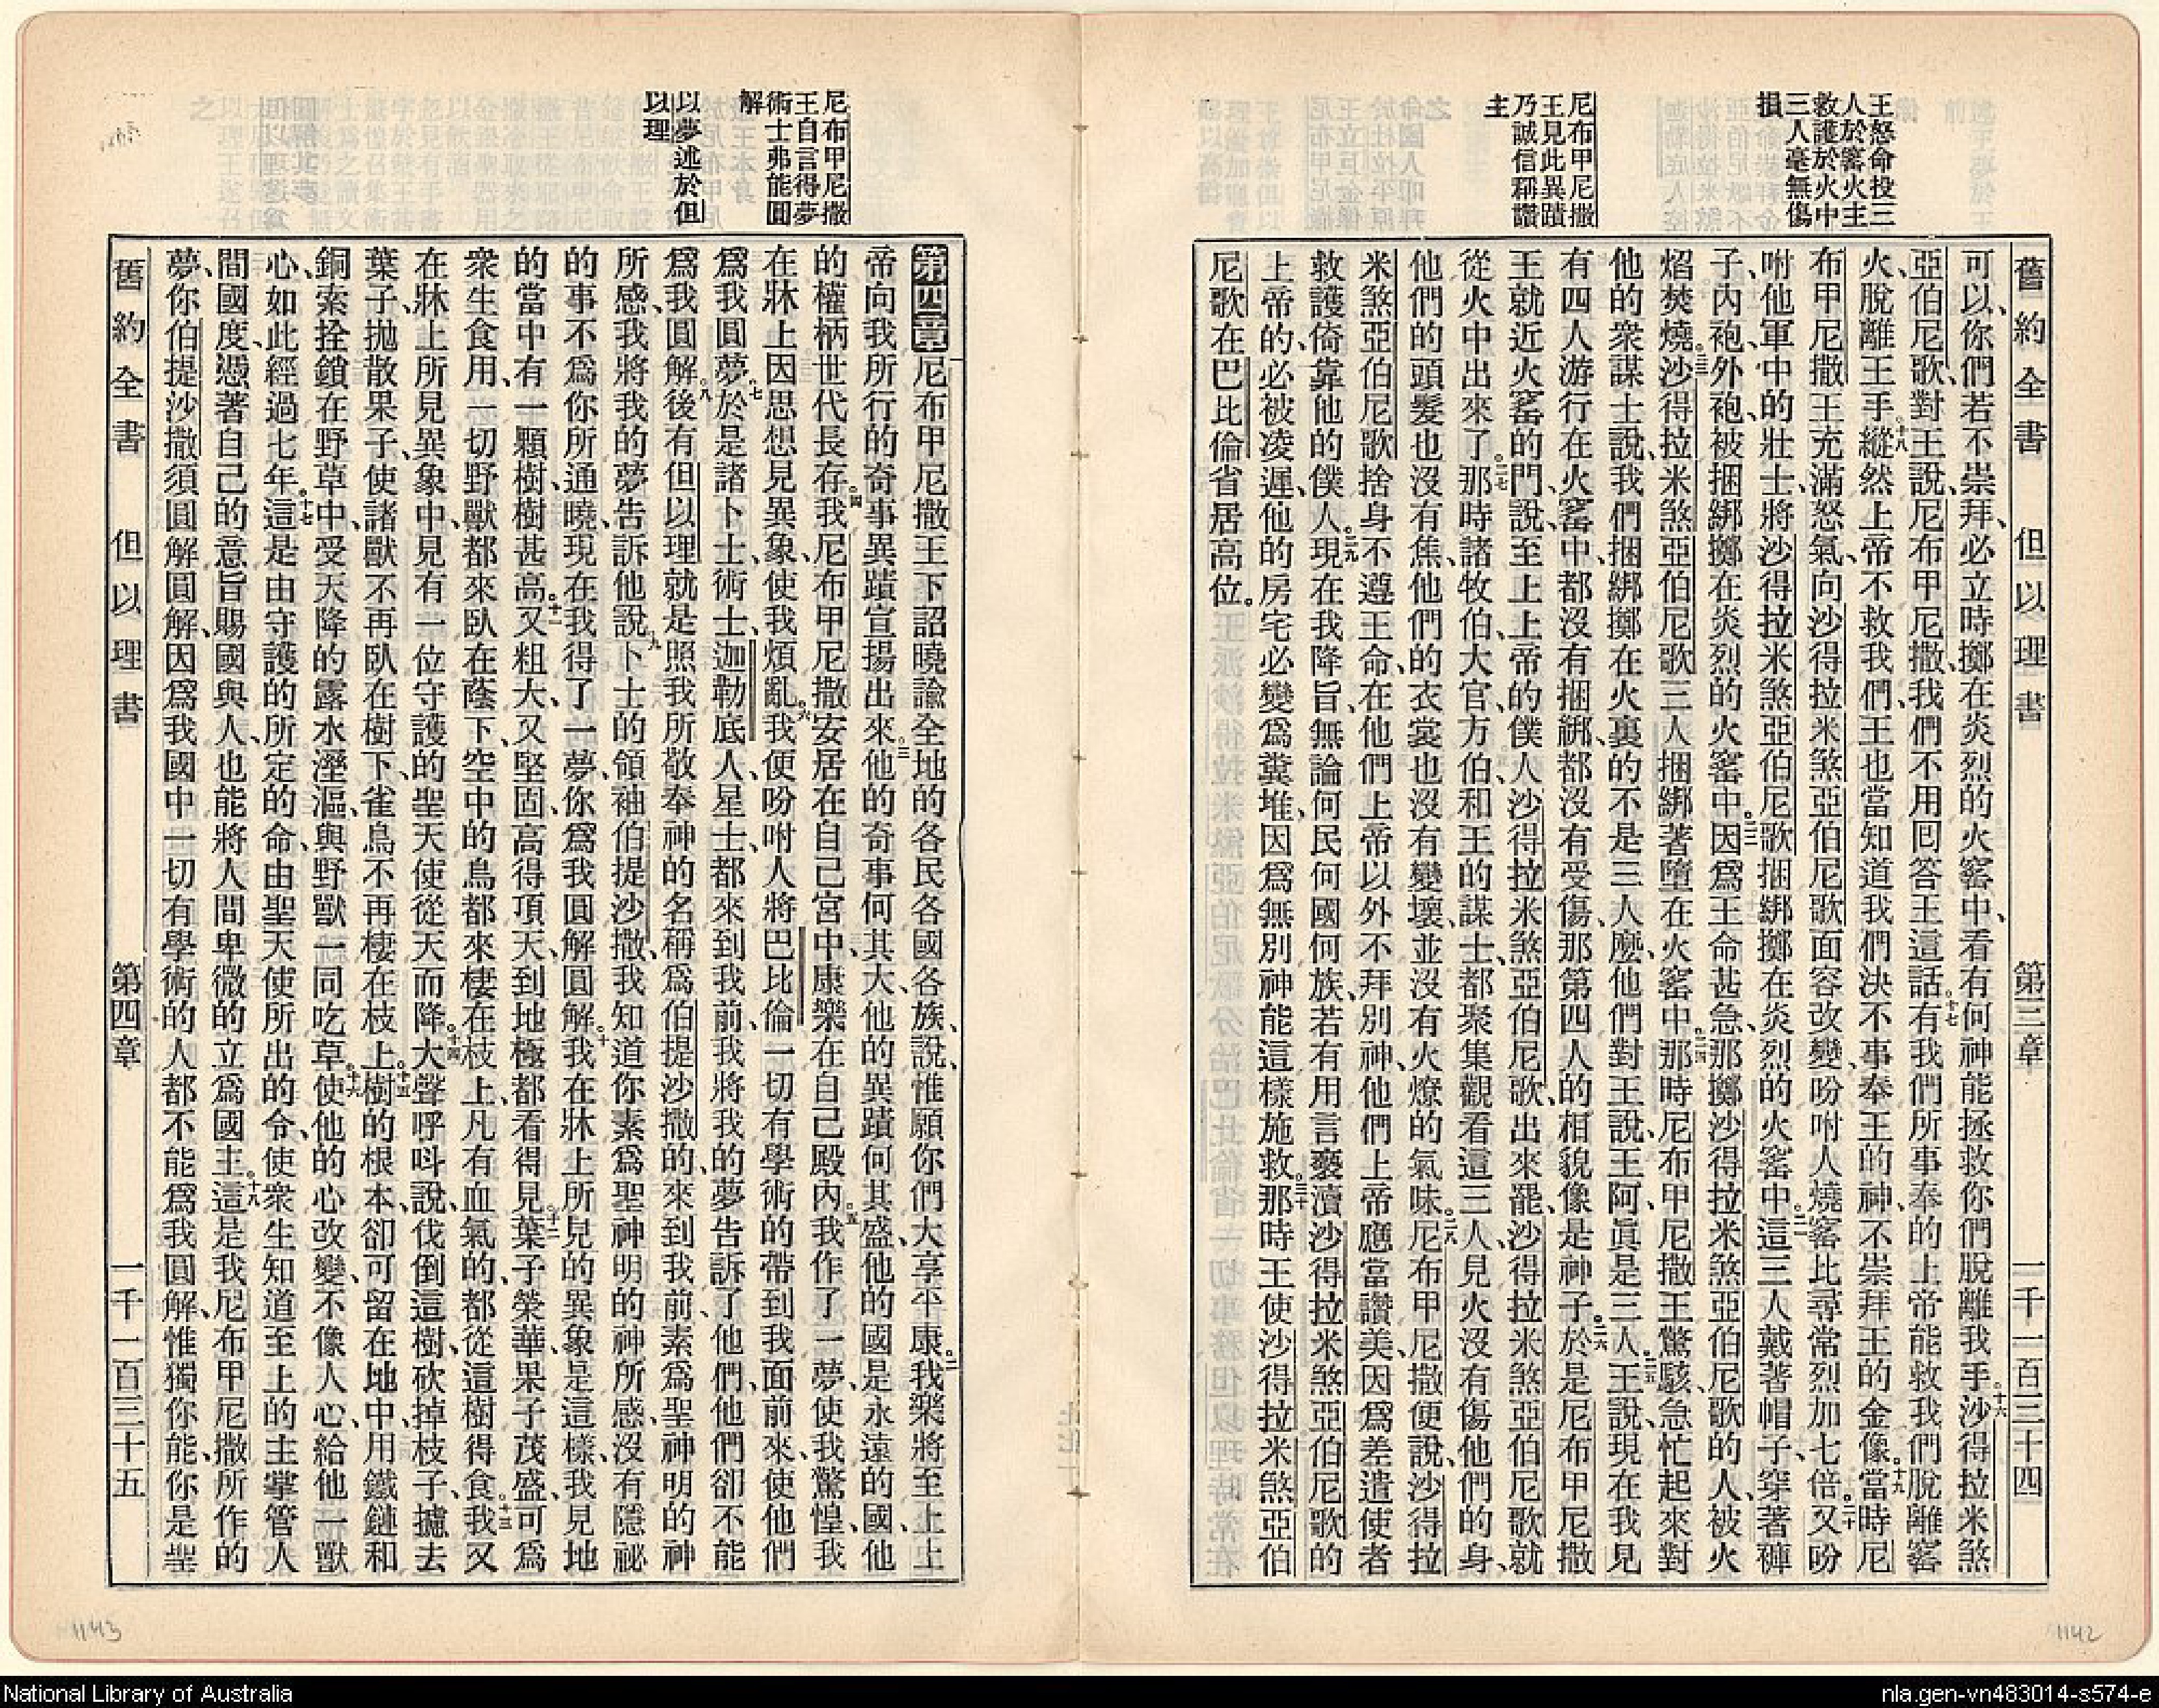 舊約全書 但以理書 第三章 一千一百三十四
王怒命投三
人於窰火主
救護於火中
三人毫無傷
損
尼布甲尼撒
王見此異蹟
乃誠信稱讚
主
可以、你們若不崇拜、必立時擲在炎烈的火窰中、看有何神能拯救你們脫離我手。十六沙得拉米煞
亞伯尼歌、對王說、尼布甲尼撒、我們不用回答王這話。十七有我們所事奉的上帝能救我們脫離窰
火、脫離王手。十八縱然上帝不救我們、王也當知道我們決不事奉王的神、不崇拜王的金像。十九當時尼
布甲尼撒王充滿怒氣、向沙得拉米煞亞伯尼歌面容改變、吩咐人燒窰比尋常烈加七倍。二十又吩
咐他軍中的壯士、將沙得拉米煞亞伯尼歌捆綁擲在炎烈的火窰中。二一這三人戴著帽子、穿著褲
子、內袍、外袍、被捆綁擲在炎烈的火窰中。二二因爲王命甚急、那擲沙得拉米煞亞伯尼歌的人、被火
焰焚燒。二三沙得拉米煞亞伯尼歌三人捆綁著墮在火窰中。二四那時尼布甲尼撒王驚駭、急忙起來、對
他的衆謀士說、我們捆綁擲在火裏的不是三人麽、他們對王說、王阿、眞是三人。二五王說、現在我見
有四人游行在火窰中、都沒有捆綁、都沒有受傷、那第四人的相貌像是神子。二六於是尼布甲尼撒
王就近火窰的門、說、至上上帝的僕人、沙得拉米煞亞伯尼歌、出來罷、沙得拉米煞亞伯尼歌就
從火中出來了。二七那時諸牧伯、大官、方伯、和王的謀士、都聚集觀看這三人、見火沒有傷他們的身、
他們的頭髮也沒有焦、他們的衣裳也沒有變壞、並沒有火燎的氣味。二八尼布甲尼撒便說、沙得拉
米煞亞伯尼歌捨身不遵王命、在他們上帝以外不拜別神、他們上帝應當讚美、因爲差遣使者
救護倚靠他的僕人。二九現在我降旨、無論何民何國何族、若有用言褻瀆沙得拉米煞亞伯尼歌的
上帝的、必被凌遲、他的房宅必變爲糞堆、因爲無別神能這樣施救。三十那時王使沙得拉米煞亞伯
尼歌在巴比倫省居高位。
尼布甲尼撒
王自言得夢
術士弗能圓
解
以夢述於但
以理
第四章 尼布甲尼撒王下詔曉諭全地的各民各國各族、說、惟願你們大享平康。二我樂將至上上
帝向我所行的奇事異蹟宣揚出來。三他的奇事何其大、他的異蹟何其盛、他的國是永遠的國、他
的權柄世代長存。四我尼布甲尼撒安居在自己宮中、康樂在自己殿內。五我作了一夢、使我驚惶、我
在牀上因思想見異象、使我煩亂。六我便吩咐人將巴比倫一切有學術的帶到我面前來、使他們
爲我圓夢。七於是諸卜士、術士、迦勒底人、星士都來到我前、我將我的夢告訴了他們、他們卻不能
爲我圓解。八後有但以理就是照我所敬奉神的名稱爲伯提沙撒的、來到我前、素爲聖神明的神
所感、我將我的夢告訴他說、九卜士的領袖伯提沙撒、我知道你素爲聖神明的神所感、沒有隱祕
的事不爲你所通曉、現在我得了一夢、你爲我圓解圓解。十我在牀上所見的異象是這樣、我見地
的當中有一顆樹、樹甚高。十一又粗大、又堅固、高得頂天、到地極都看得見。十二葉子榮華、果子茂盛、可爲
衆生食用、一切野獸都來臥在蔭下、空中的鳥都來棲在枝上、凡有血氣的都從這樹得食。十三我又
在牀上所見異象中、見有一位守護的聖天使從天而降。十四大聲呼呌說、伐倒這樹、砍掉枝子、攄去
葉子、拋散果子、使諸獸不再臥在樹下、雀鳥不再棲在枝上。十五樹的根本、卻可留在地中、用鐵鏈和
銅索拴鎖在野草中、受天降的露水溼漚、與野獸一同吃草。十六使他的心改變、不像人心、給他一獸
心、如此經過七年。十七這是由守護的所定的命、由聖天使所出的令、使衆生知道至上的主掌管人
間國度、憑著自己的意旨賜國與人、也能將人間卑微的立爲國主。十八這是我尼布甲尼撒所作的
夢、你伯提沙撒須圓解圓解、因爲我國中一切有學術的人都不能爲我圓解、惟獨你能、你是聖
舊約全書 但以理書 第四章 一千一百三十五
1143
1142
National Library of Australia
nla.gen-vn483014-s574-e